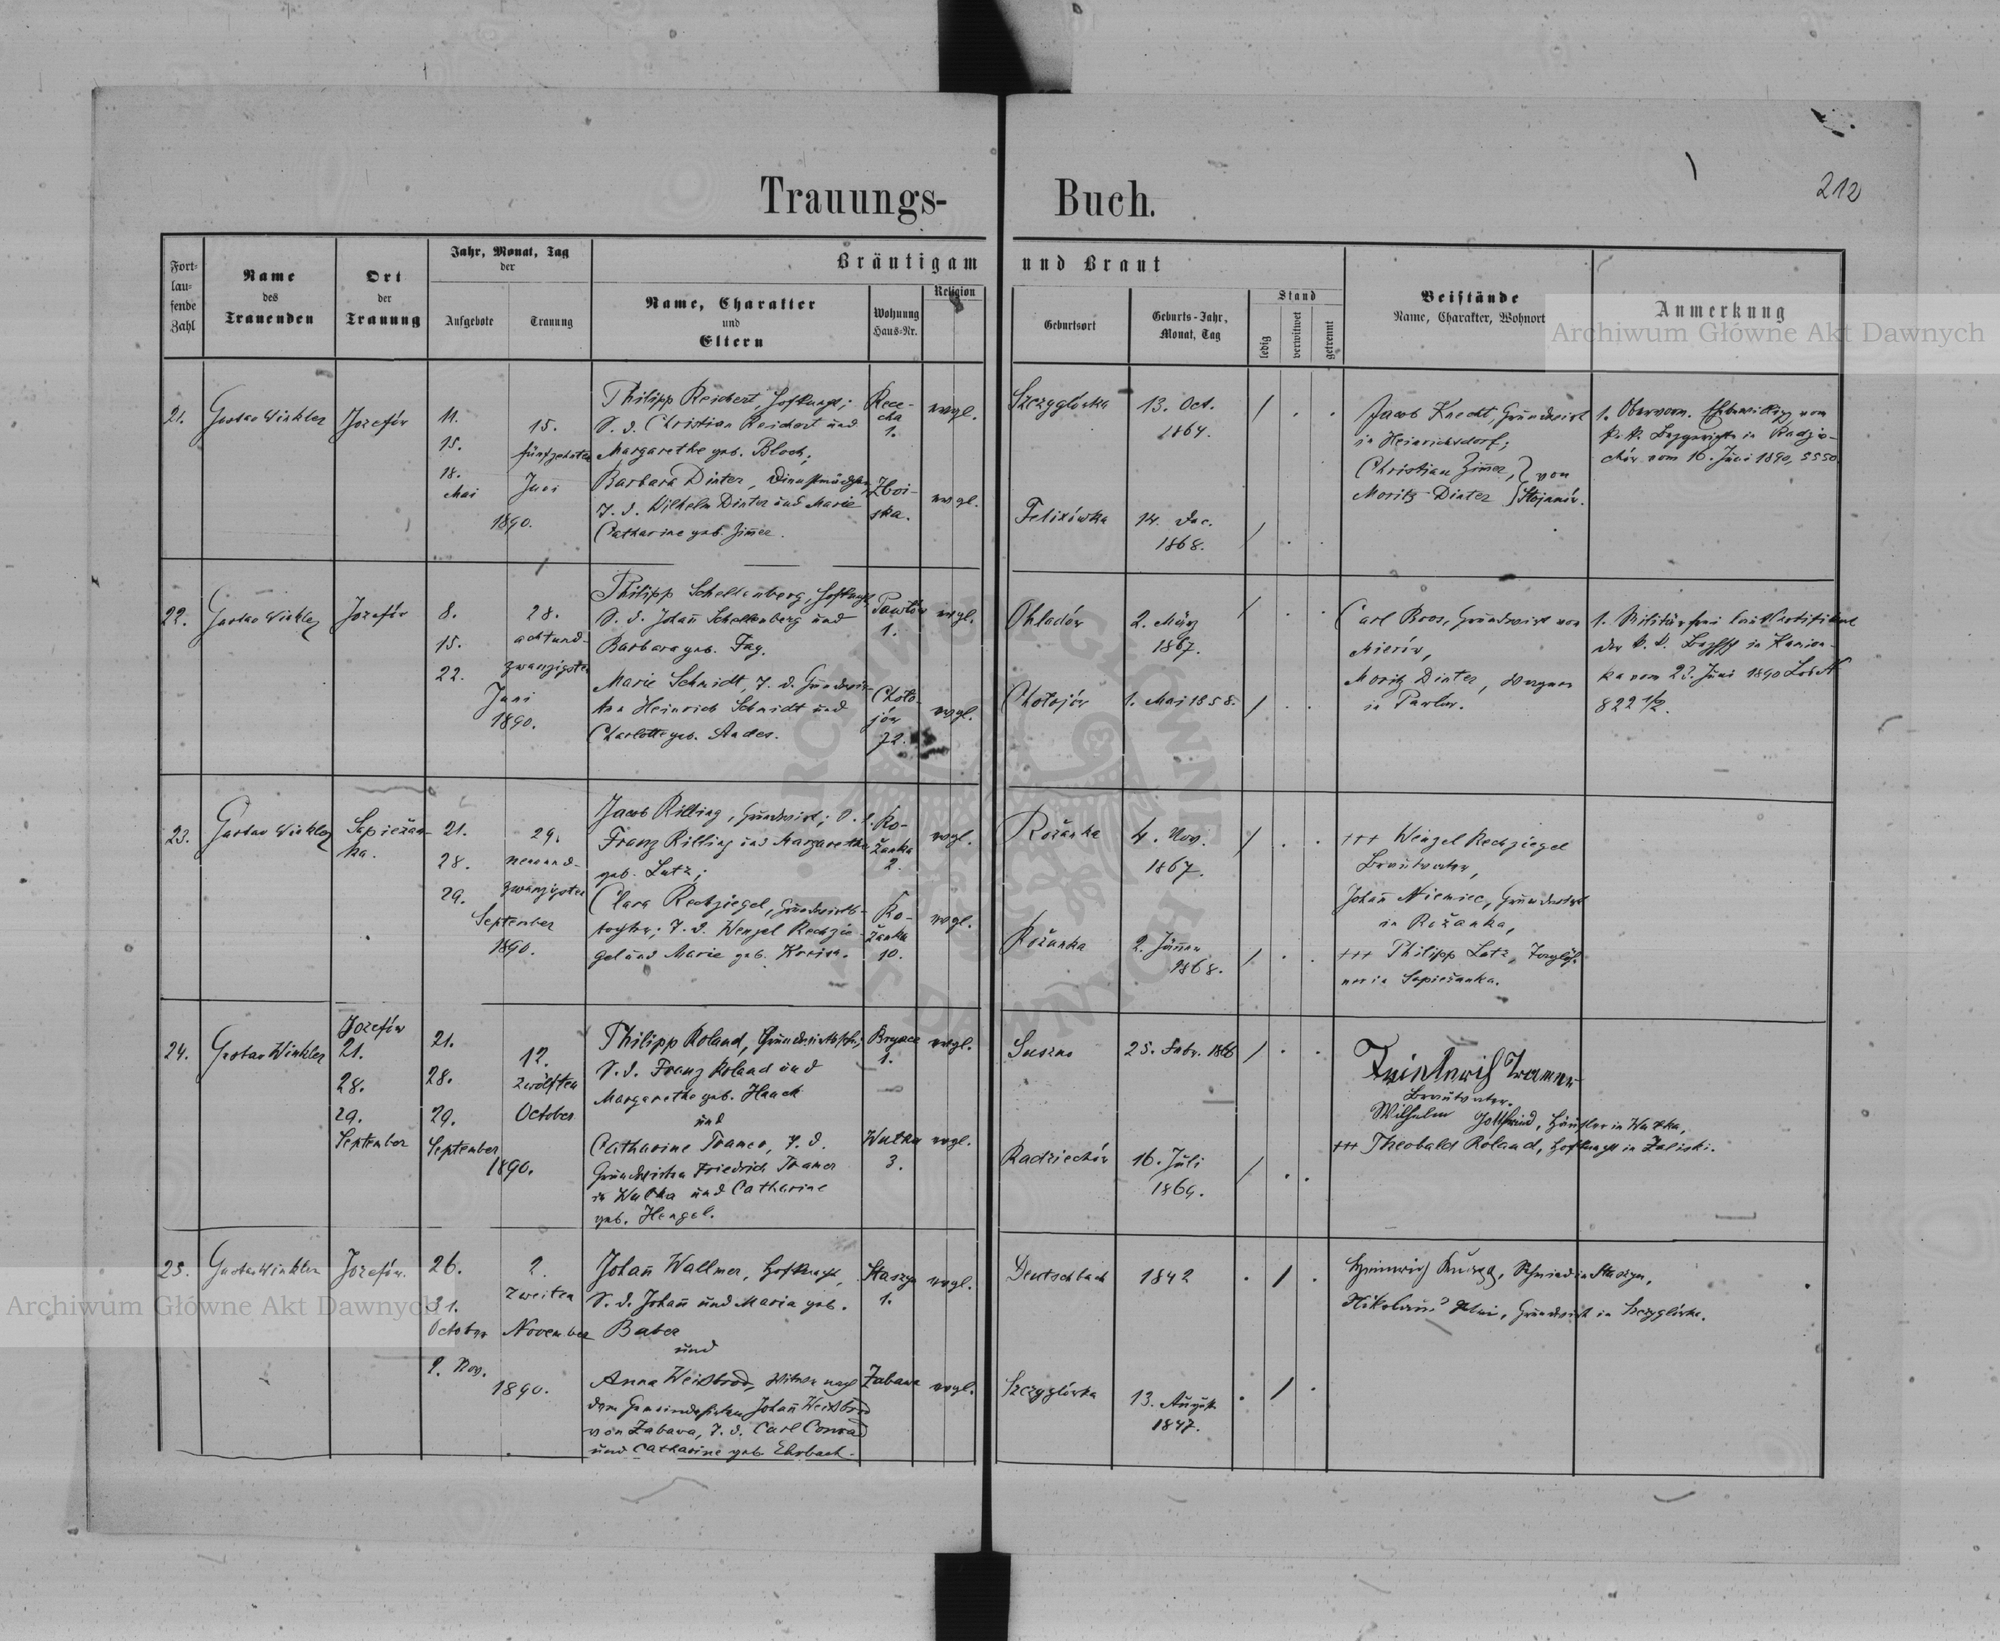 Trauungs- Buch.
212
Fort-
lau-
fende
Zahl
Name
des
Trauenden
Ort
der
Trauung
Jahr, Monat, Tag
der
Aufgebote
Trauung
Bräutigam und Braut
Name, Charakter
und
Eltern
Wohnung
Haus-Nr.
Religion
Geburtsort
Geburts-Jahr,
Monat, Tag
Stand
ledig
verwitwet
getrennt
Beistände
Name, Charakter, Wohnort
Anmerkung
Archiwum Główne Akt Dawnych
21.
Gustav Winkler
Józefów
11.
15.
18.
Mai
15.
fünfzehnten
Juni
1890.
Philipp Reichert, Hofknecht;
S. d. Christian Reichert und
Margarethe geb. Bloch;
Barbara Dinter,
T. d. Wilhelm Dinter und Marie
Catharine geb. Zim̄er.
1.
Zboi-
ska.
evgl.
evgl.
Szczyglówka
13. Oct.
1864.
Felixówka
14. Dec.
1868.
Jacob Knecht, Grundwirt
in Heinrichsdorf;
Christian Zim̄er, von
Moritz Dinter Stojanów.
vom 16. Juni 1890, 5550
22.
Gustav Winkler
Józefów
8.
15.
22.
Juni
1890.
28.
achtund-
zwanzigsten
Philipp Schellenberg, Hofknecht
S. d. Johan̄ Schellenberg und
Barbara geb. Fay.
Marie Schmidt, T. d. Grundwir-
ten Heinrich Schmidt und
Charlotte geb. Andes.
Pawlów
1.
Choto-
jów
72.
evgl.
evgl.
Ohladów
2. März
1867.
Chotojów
1. Mai 1858.
Carl Roos, Grundwirt von
Mierów,
Moritz Dinter,
in Pawlow.
vom 23. Juni 1890
822 1/2.
23.
Gustav Winkler
Sapieżan-
ka.
21.
28.
29.
September
1890.
29.
neunund-
zwanzigsten
Jacob Rilling, Grundwirt; S. d.
Franz Rilling und Margaretha
geb. Lutz;
Clara Rechziegel, Grundwirts-
tochter; T. d. Wenzel Rechzie-
gel und Marie geb.
Ro-
żanka
2.
Ro-
żanka
10.
evgl.
evgl.
Rożanka
4. Nov.
1867.
Rożanka
2. Jän̄er
1868.
+++ Wenzel Rechziegel
Brautvater,
Johan̄ Niemiec, Grundwirt
in Rożanka,
+++ Philipp Lutz, Taglöh-
ner in Sapieżanka.
24.
Gustav Winkler
Józefów
21.
28.
29.
September
21.
28.
29.
September
1890.
12.
zwölften
October
Philipp Roland, Grundwirtssohn,
S. d. Franz Roland und
Margarethe geb. Haack
und
Catharine Tramer, T. d.
Grundwirten Friedrich Tramer
in Wulka und Catharine
geb. Hengel.
1.
Wulka
3.
evgl.
evgl.
Suszno
25. Febr. 1868
Radziechów
16. Juli
1869.
Friedrich Tramer
Brautvater.
Wilhelm Gottfried, Häusler in Wulka,
+++ Theobald Roland, Hofknecht in Zaliski.
25.
Gustav Winkler
Józefów.
26.
31.
October
9. Nov.
1890.
2.
zweiten
November
Johan̄ Wallner, Hofknecht,
S. d. Johan̄ und Maria geb.
Baber
und
Anna Weisbrod, Witwe nach
dem Johan̄ Weisbrod
von Zabawa, T. d. Carl Conrad
und Catharine geb. Ehrbach.
Staszyn
1.
Zabawa
evgl.
evgl.
Deutschbach
1842
Szczyglówka
13. August
1847.
Heinrich Schmied in Staszyn,
Nikolaus Grundwirt in Szczyglówka.
Archiwum Główne Akt Dawnych